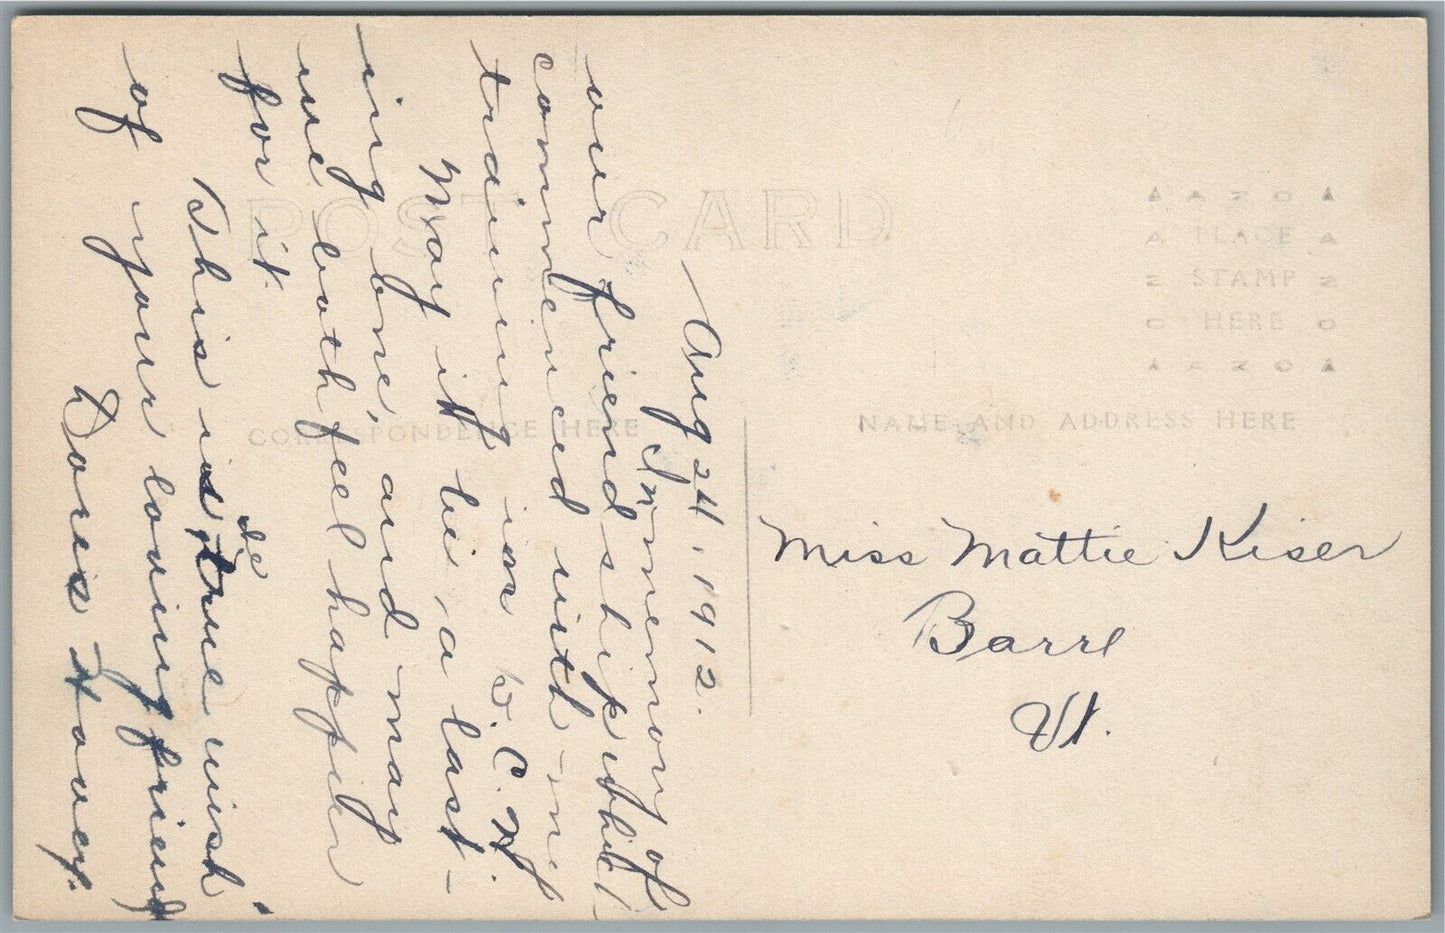 POST CARD
CORRESPONDENCE HERE
NAME AND ADDRESS HERE
AZO
PLACE
STAMP
HERE
AZO
Aug 24, 1912.
In memory of
our friendship which
commenced with me
training in D. C. H.
May it be, a last-
ing one, and may
we both feel happier
for it.
This is the true wish
of your loving friend
Doris Hovey.
Miss Mattie Kiser
Barre
Vt.